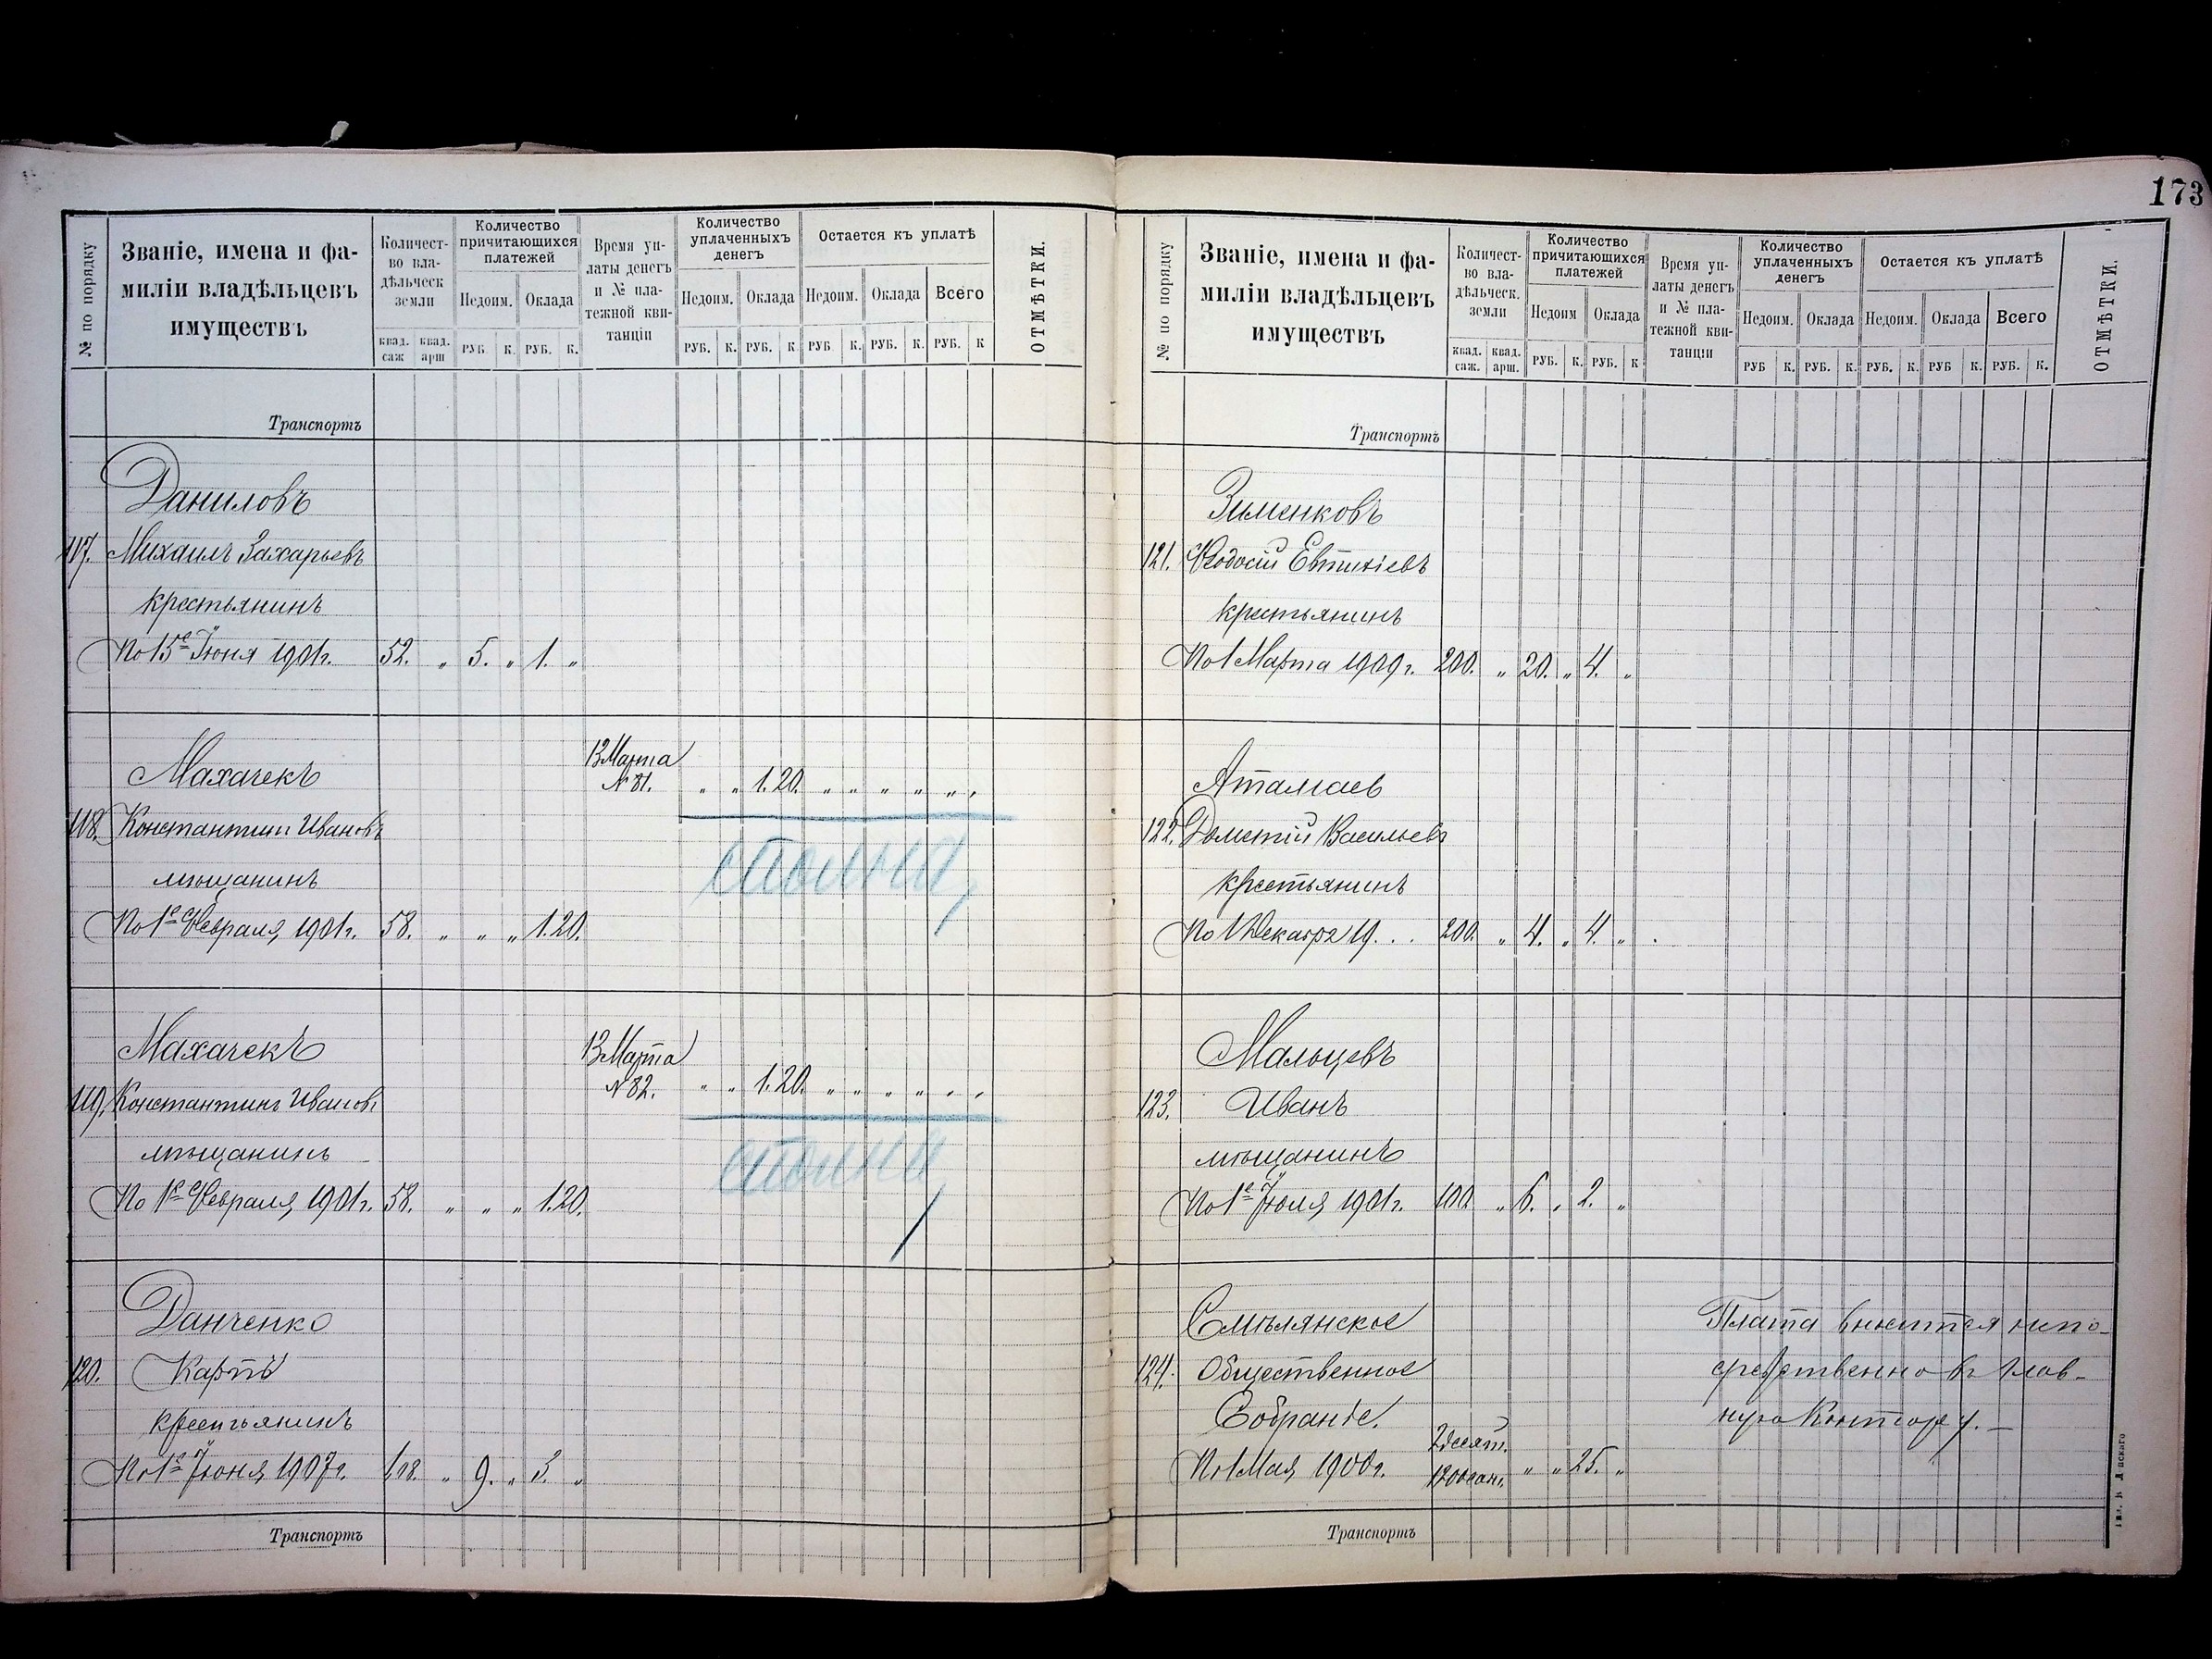 173
№ по порядку
Званіе, имена и фа-
миліи владѣльцевъ
имуществъ
Количест-
во вла-
дѣльческ
земли
квад. саж
квад. арш
Количество
причитающихся
платежей
Недоим. Оклада
РУБ К. РУБ. К.
Время уп-
латы денегъ
и № пла-
тежной кви-
танціи
Количество
уплаченныхъ
денегъ
Недоим. Оклада
РУБ. К. РУБ. К
Остается къ уплатѣ
Недоим. Оклада Всего
РУБ К. РУБ. К. РУБ. К
ОТМѢТКИ.
Транспортъ
Даниловъ
117. Михаилъ Захарьевъ
крестьянинъ
По 15е Іюня 1901г. 52. „ 5. „ 1. „
Махачекъ
13 Марта
№ 81. „ „ 1.20. „ „ „ „ „ „
118. Константинъ Ивановъ
сполна
мѣщанинъ
По 1е Февраля 1901г. 58. „ „ „ 1.20.
Махачекъ
13 Марта
№ 82. „ „ 1.20. „ „ „ „ „ „
119. Константинъ Ивановъ
сполна
мѣщанинъ
По 1е Февраля 1901г. 58. „ „ „ 1.20.
Данченко
120. Карпъ
крестьянинъ
По 1е Іюня 1907г. 118. „ 9. „ 3. „
Транспортъ
№ по порядку
Званіе, имена и фа-
миліи владѣльцевъ
имуществъ
Количест-
во вла-
дѣльческ.
земли
квад. саж.
квад. арш.
Количество
причитающихся
платежей
Недоим Оклада
РУБ. К. РУБ. К
Время уп-
латы денегъ
и № пла-
тежной кви-
танціи
Количество
уплаченныхъ
денегъ
Недоим. Оклада
РУБ К. РУБ. К.
Остается къ уплатѣ
Недоим. Оклада Всего
РУБ. К. РУБ К. РУБ. К.
ОТМѢТКИ.
Транспортъ
Зименковъ
121. Ѳеодосій Евтихіевъ
крестьянинъ
По 1 Марта 1909 г. 200. „ 20. „ 4. „
Аталаев
122. Дометій Васильевъ
крестьянинъ
По 1 Декабря 19... 200. „ 4. „ 4. „
Мальцевъ
123. Иванъ
мѣщанинъ
По 1е Іюля 1901г. 100. „ 6. „ 2. „
Смѣлянское
Плата вносится непо-
124. Общественное
средственно въ Глав-
Собраніе.
ную Контору. —
2 десят.
По 1 Мая 1900г. 1200 саж. „ „ 25. „
Транспортъ